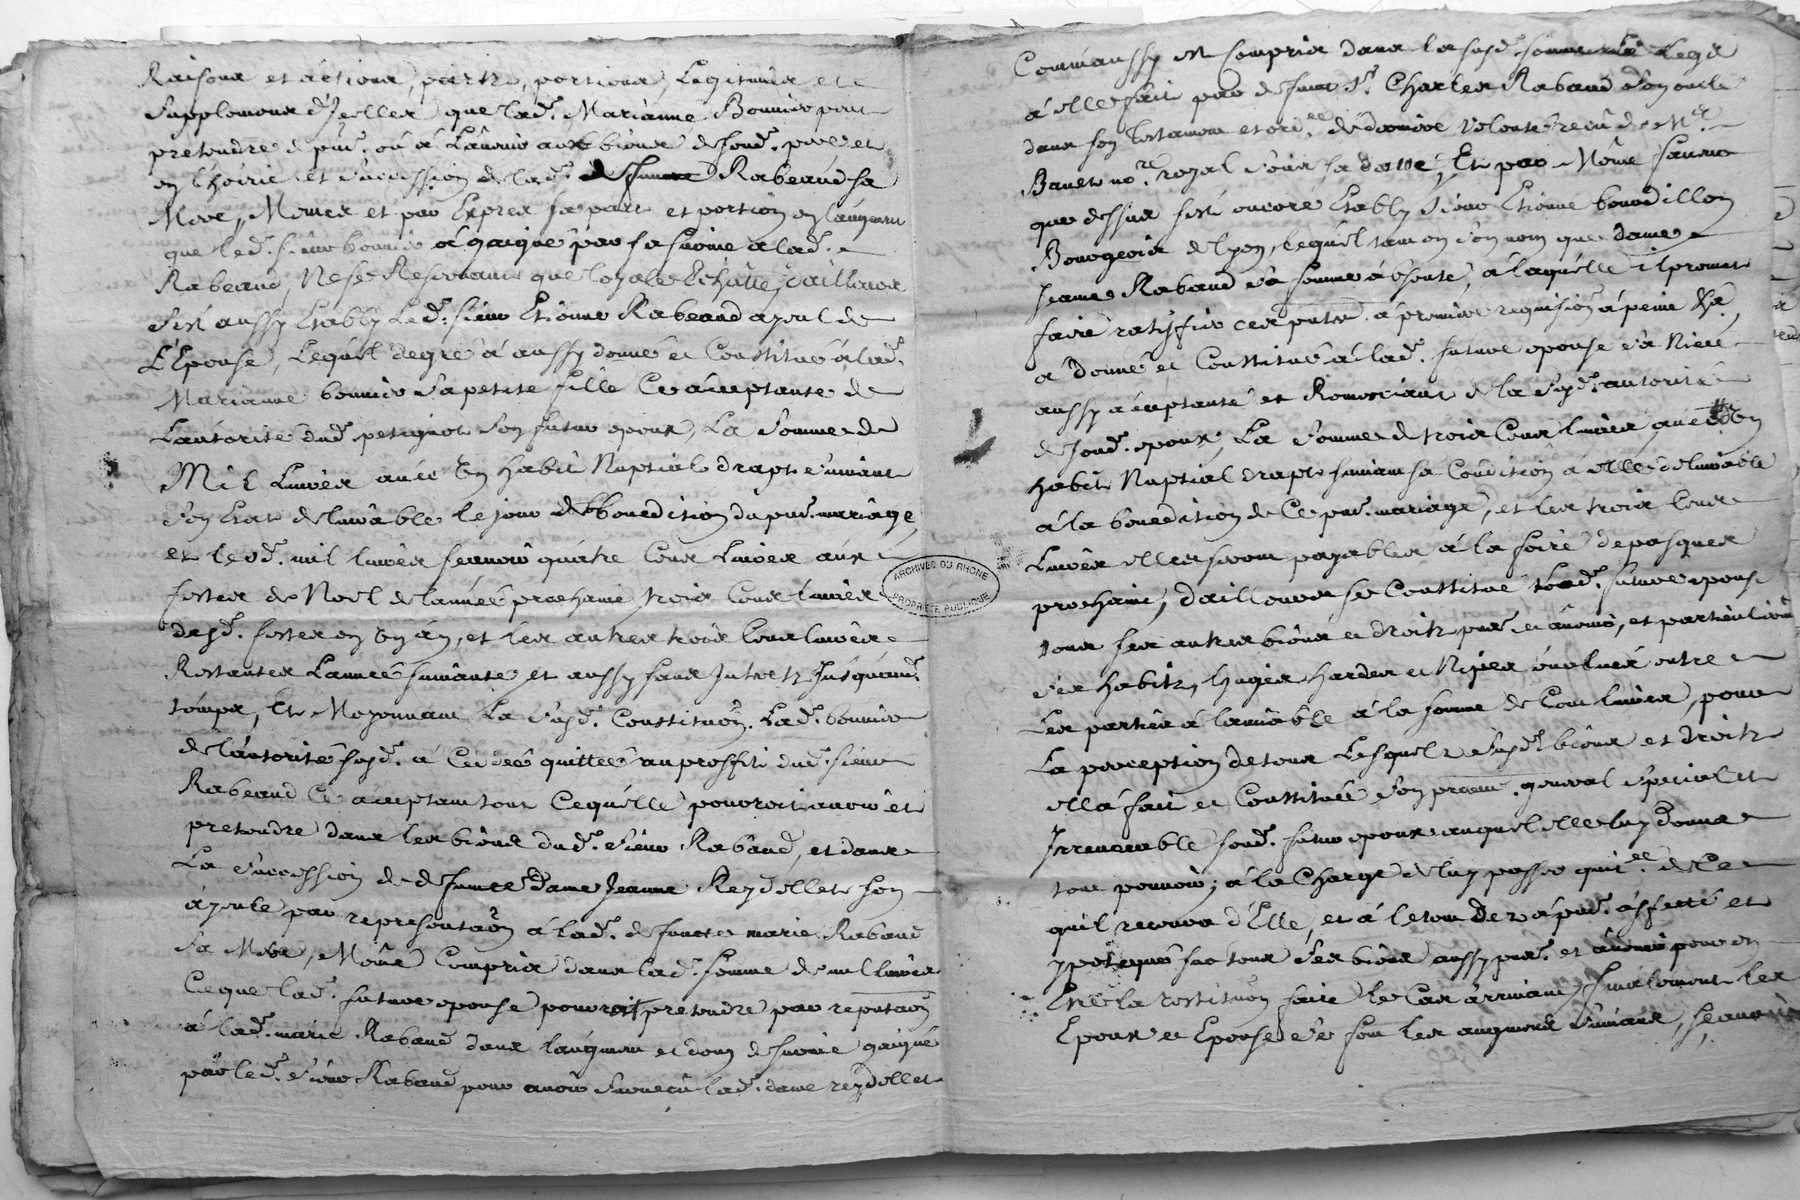 Raisons et actions, partz, portions, Legitimes et
supplemens d'Icelles que lad.e Marianne Bonnier peut
pretendre de pnt. ou à L'avenir aux biens de sond. pere et
en l'hoirie et succession de lad.e deffuncte Rabeaud sa
Mere, Mesmes et par Expres sa part et portion en l'augment
que led. sieur bonnier à gaigné par sa survie à lad.e
Rabeaud, Ne se Reservant que loyale Eschutte, d'ailleurs
s'est aussy Estably Led. sieur Etienne Rabeaud ayeul de
L'Epouse, Lequel de gré à aussy donné et Constitué à lad.e
Marianne bonnier sa petite fille Ce acceptante de
L'autorité dud. petignot son futur epoux, La somme de
Mil Livres avec un habit Nuptial drapt suivant
son Estat delivrable le jour de la benediction du pnt. mariage
et lesd. mil livres scavoir quatre Cens Livres aux
festes de Noel de l'année prochaine, trois Cens livres
desd. festes en un an, et les autres trois Cens livres
Restantes L'année suivante et aussy sans Intretz Jusqu'aud.
temps, Et Moyennant La susd. Constituôn. Lad.e bonnier
de l'autorité susd. à Ceddé et quitté au proffit dud. sieur
Rabeaud Ce acceptant tout Ce qu'elle pouvroit avoir et
pretendre dans les biens dud. sieur Rabaud, et dans
La succession de deffuncte dame Jeanne Reydellet son
ayeule par representaôn à lad.e deffuncte marie Rabaud
sa Mere, Même Compris dans lad.e somme de mil livres
Ce que lad.e future epouse pouvroit pretendre par reputaôn
à lad.e marie Rabaud dans l'augment et don de survie gaigné
par led. sieur Rabaud pour avoir survecu lad.e dame reydellet
Comm'aussy est Compris dans la susd. somme le Legs
à elle fait par deffunt Sr. Charles Rabaud son oncle
dans son testament et ord.ce de derniere volonté receu de Me.
no.re royal sous sa datte, Et par Même faveur
que dessus s'est encore Estably sieur Etienne bourdillon
Bourgeois de lyon, Lequel tant en son nom que dame
Jeanne Rabaud sa femme absente, à laquelle il promet
faire ratiffier ces pntes. à premiere requision à peine &a.
a donné et Constitué à lad.e future epouse sa Niece
aussy acceptante et Remerciant de la susd. autorité
de sond. epoux, La somme de trois Cens livres, avec un
habit Nuptial drapt suivant sa Condition à elle delivrable
à la benediction de Ce pnt. mariage, et les trois Cens
Livres elles seront payables à la foire de pasques
prochaine, d'ailleurs se Constitue lad.e future epouse
tous ses autres biens et droitz pnts. et avenir, et particulierem.
ses habitz, linges hardes et Nipes evalués entre
Les parties à l'amiable à la somme de Cent livres, pour
La perception de tous Lesquelz susd. biens et droitz
ell'a fait et Constitué son procur. general special et
Irrevocable sond. futur epoux auquel elle luy donne
tout pouvoir, à la Charge de luy passer quit.ce de Ce
qu'il recevra d'Elle, et à le tout dez à pnt. affecté et
ypotequé sur tous ses biens aussy pnts. et avenir pour en
Estre la restituôn faite le Cas arrivant, finalement les
Epoux et Epouse se sont les augments suivans, scavoir
ARCHIVES DU RHONE
PROPRIÉTÉ PUBLIQUE